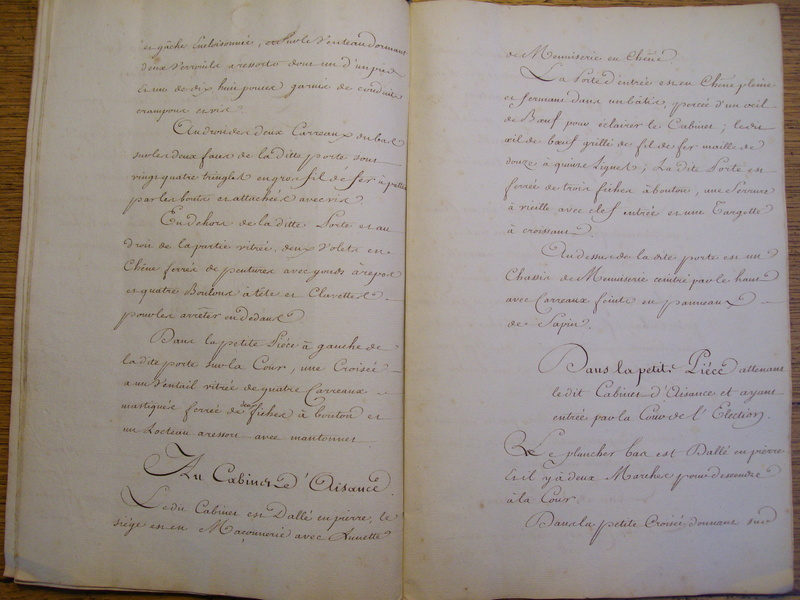 et gâche Encloisonnée, et sur le Venteau dormant
deux Verrouils a ressorts dont un d'un pied
l'autre de dix huit pouces garnis de conduits
crampons et vis
Au droit des deux Carreaux du bas
sur les deux faces de la ditte porte sont
vingt quatre tringles en gros fil de fer à pattes
par les bouts et attachées avec vis
En dehors de la ditte Porte et au
droit de la partie vitrée, deux Volets en
Chêne ferrés de pentures avec gonds à repos
et quatre Boutons à tête et Clavettes
pour les arrêter en dedans
Dans la petite Piéce à gauche de
la dite porte sur la Cour, une Croisée
a un Ventail vitrée de quatre Carreaux
mastiqués ferrée de fiches à bouton et
un Locteau a ressort avec mantonnet
Au Cabinet d'Aisance
Le dit Cabinet est Dallé en pierre, le
siége est en Maçonnerie avec Lunette
de Menuiserie en Chêne
La Porte d'entrée est en Chêne pleine
et fermant dans un bâtis, percée d'un œil
de Bœuf pour éclairer le Cabinet; le dit
œil de bœuf grillé de fil de fer maille de
douze à quinze Lignes; La dite Porte est
ferrée de trois fiches à bouton, une Serrure
à vieille avec clef entrée et une Targette
à croissant
Au dessus de la dite porte est un
Chassis de Menuiserie ceintré par le haut
avec Carreaux feints en panneaux
de Sapin.
Dans la petite Piéce attenant
le dit Cabinet d'Aisance et ayant
entrée par la Cour de l'Election.
Le plancher bas est Dallé en pierre
Et il y à deux Marches pour descendre
à la Cour
Dans la petite Croisée donnant sur